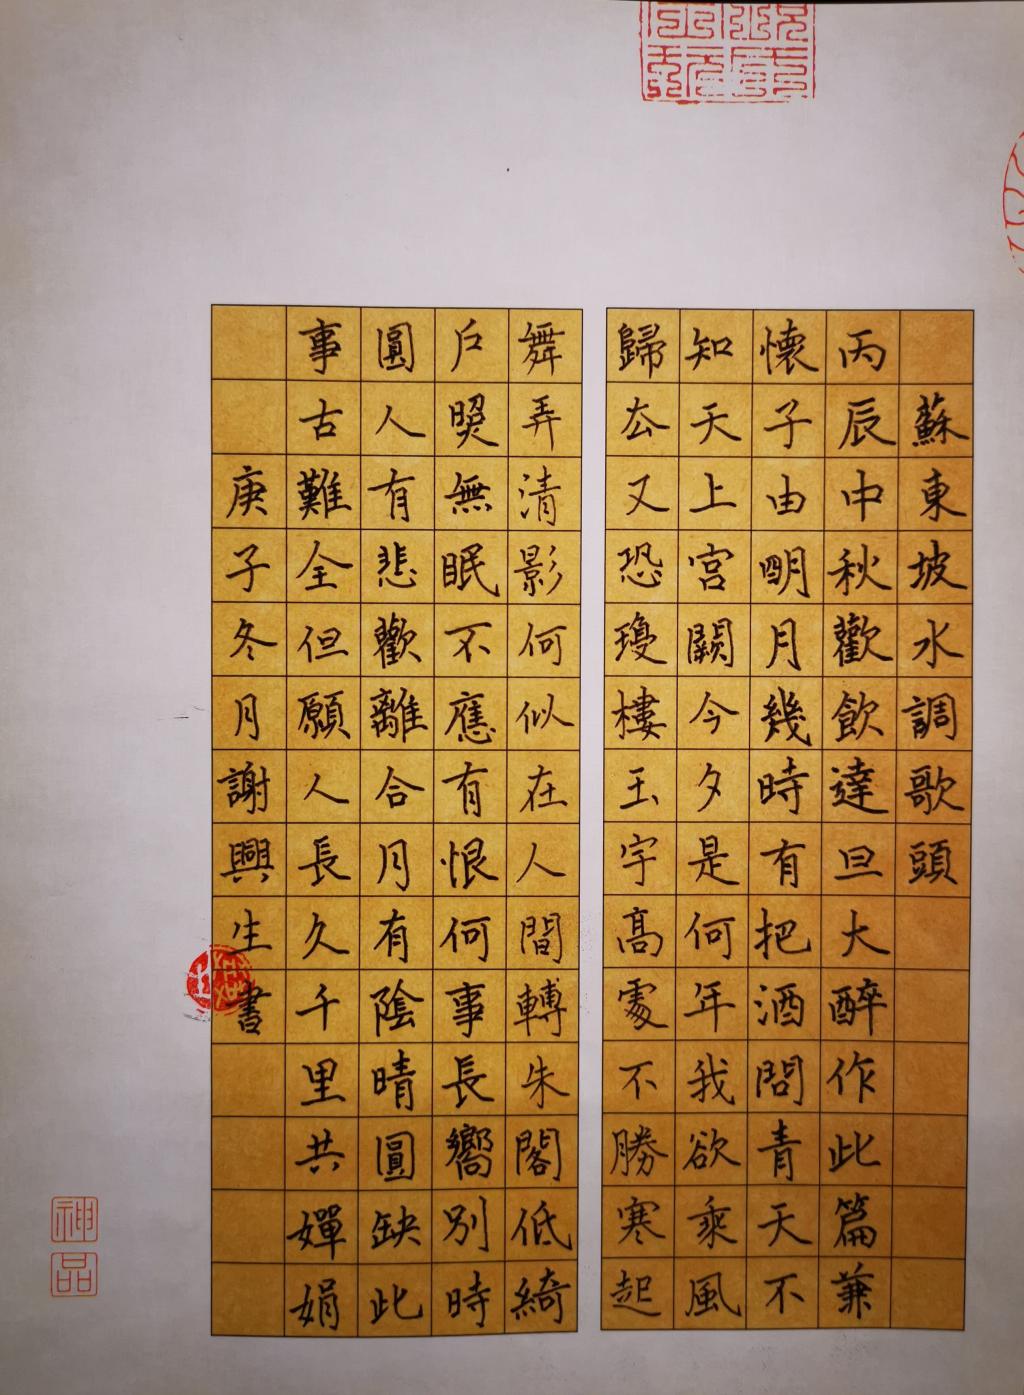 蘇東坡水調歌頭
丙辰中秋歡飲達旦大醉作此篇兼
懷子由明月幾時有把酒問青天不
知天上宮闕今夕是何年我欲乘風
歸去又恐瓊樓玉宇高處不勝寒起
舞弄清影何似在人間轉朱閣低綺
戶照無眠不應有恨何事長嚮別時
圓人有悲歡離合月有陰晴圓缺此
事古難全但願人長久千里共嬋娟
庚子冬月謝興生書
神品